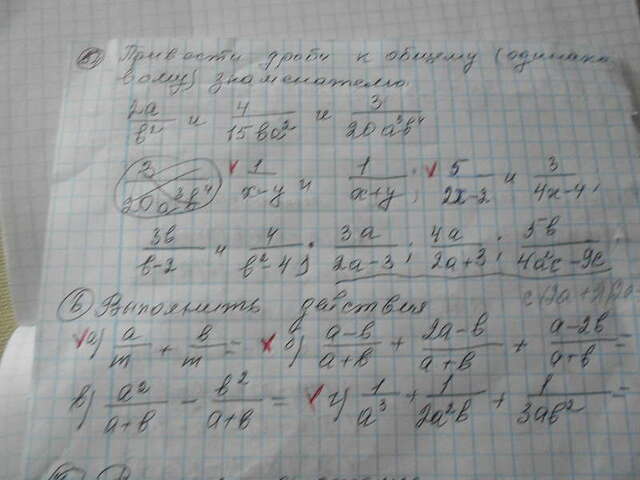 5) Привести дроби к общему (одинако
вому) знаменателю
2a/b² и 4/15ba² и 3/20a³b⁴
3/20a³b⁴ 1/x-y и 1/x+y; 5/2x-2 и 3/4x-4;
3b/b-2 и 4/b²-4; 3a/2a-3; 4a/2a+3; 5b/4a²c-9c
6) Выполнить действия
а) a/m + b/m = б) a-b/a+b + 2a-b/a+b + a-2b/a+b =
в) a²/a+b - b²/a+b = г) 1/a³ + 1/2a²b + 1/3ab² =